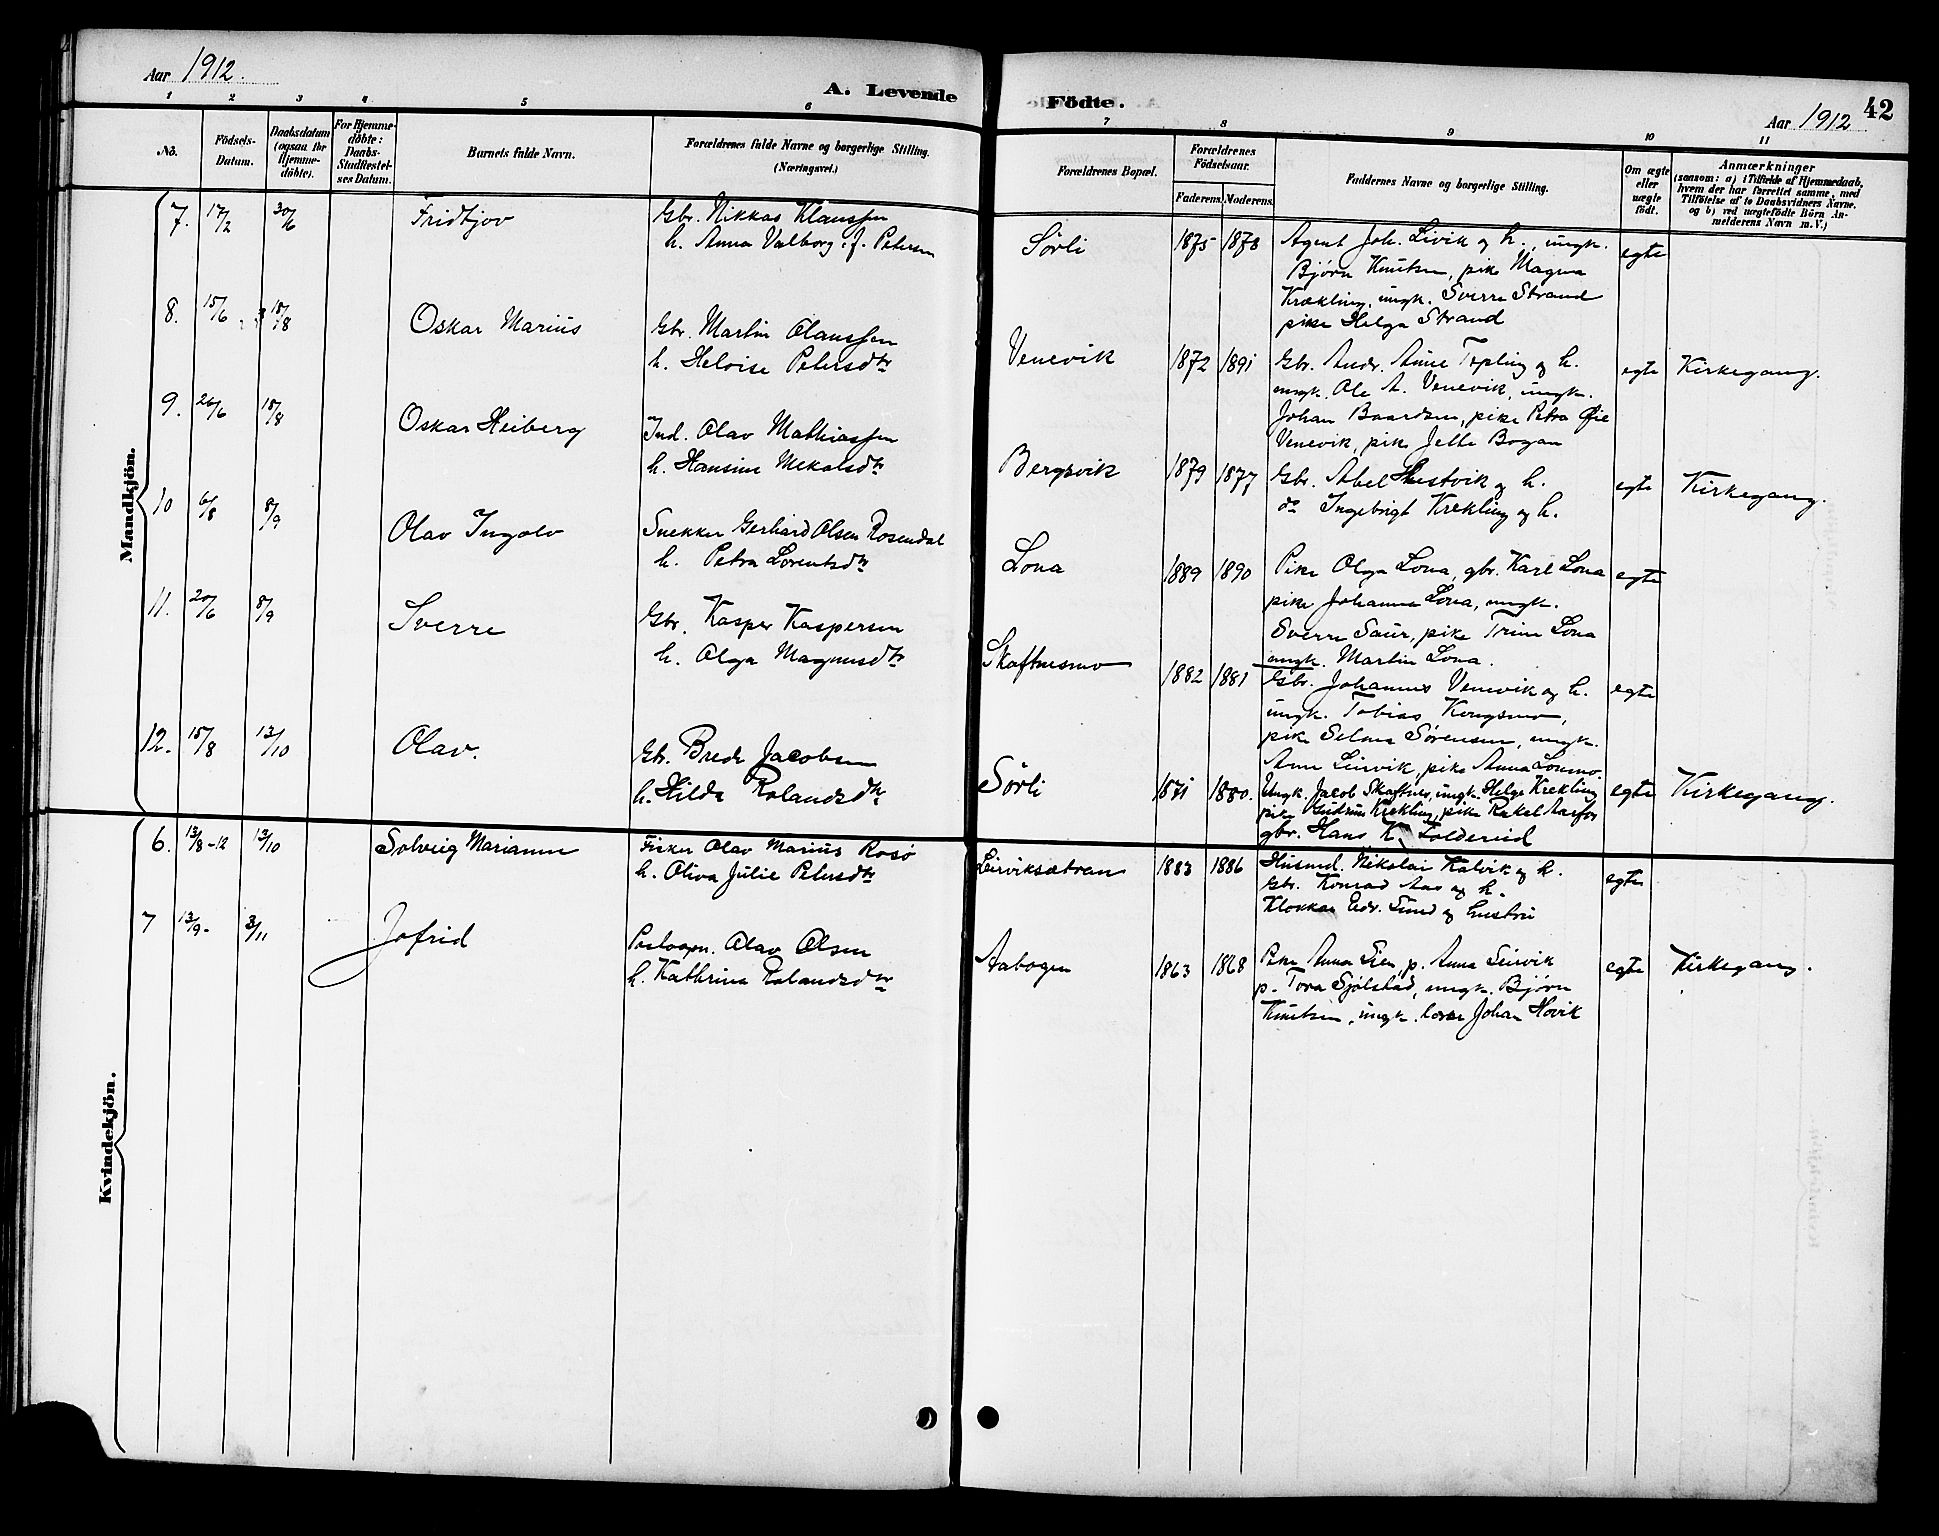 Aar 1912.
A. Levende
1 2 3 4 5 6
No.
Födsels-Datum.
Daabsdatum (ogsaa for Hjemme-döbte).
For Hjemme-döbte: Daabs-Stadfestel-ses Datum.
Barnets fulde Navn.
Forældrenes fulde Navne og borgerlige Stilling.
(Næringsvei.)
Mandkjön.
7. 17/2 30/6 Fridtjov Gbr. Nikkas Klaussen
h. Anna Valborg f. Petersen
8. 15/6 18/8 Oskar Marius Gbr. Martin Olaussen
h. Heloise Petersdtr
9. 26/6 18/8 Oskar Heiberg Ind. Olav Mathiassen
h. Hansine Mekalsdtr
10 6/8 8/9 Olav Ingolv Snekker Gerhard Olsen Rosendal
h. Petra Lorentsdtr
11. 20/6 8/9 Sverre Gbr. Kasper Kaspersen
h. Olga Magnusdtr
12. 15/8 13/10 Olav. Gbr. Brede Jacobsen
h. Hilda Rolandsdtr.
Kvindekjön.
6. 13/8-12 13/10 Solveig Marianne Fisker Olav Marius Rosö
h. Oliva Julie Petersdtr
7 13/9- 3/11 Jofrid Postaapn. Olav Olsen
h. Kathrina Rolandsdtr
Födte.
Aar 1912 42
7 8 9 10 11
Forældrenes Bopæl.
Forældrenes Födselsaar.
Faderens. Moderens.
Faddernes Navne og borgerlige Stilling.
Om ægte eller uægte födt.
Anmærkninger
(saasom: a) i Tilfælde af Hjemmedaab,
hvem der har forrettet samme, med
Tilföielse af to Daabsvidners Navne.
og b) ved uægtefödte Börn An-
melderens Navn m. V.)
Sörli 1875 1878 Agent Joh. Livik og h., ungk. egte
Björn Knutsen, pike Magna
Krækling, ungk. Sverre Strand
pike Helga Strand
Venevik 1872 1891 Gbr. Andr. Aune Töpling og h. egte Kirkegang.
ungk. Ole A. Venevik, ungk.
Johan Baardsen, pike Petra Öie
Venevik, pike Jette Bogan
Bergsvik 1879 1877 Gbr. Abel Hestvik og h. egte Kirkegang.
do Ingebrigt Krekling og h.
Lona 1889 1890 Pike Olga Lona, gbr. Karl Lona egte
pike Johanna Lona, ungk.
Sverre Saur, pike Trine Lona
ungk. Martin Lona.
Skaftnesmo 1882 1881 Gbr. Johannes Venevik og h. egte
ungk. Tobias Kongsmo,
pike Selma Sörensen, ungk.
Arne Leirvik, pike Anna Lonmo.
Sörli 1871 1880. Ungk. Jacob Skaftnes, ungk. Helge Krekling egte Kirkegang.
pike Gudrun Krekling, pike Rakel Aarfor
gbr. Hans K. Foldereid
Leirviksætran 1883 1886 Husmd. Nikolai Kalvik og h. egte
Gbr. Konrad Aas og h.
Klokker Edv. Sund og hustru
Aabogen 1863 1868 Pike Anna Lien, p. Anna Leirvik egte Kirkegang.
p. Tora Sjölstad, ungk. Björn
Knutsen, ungk. Johan Hövik